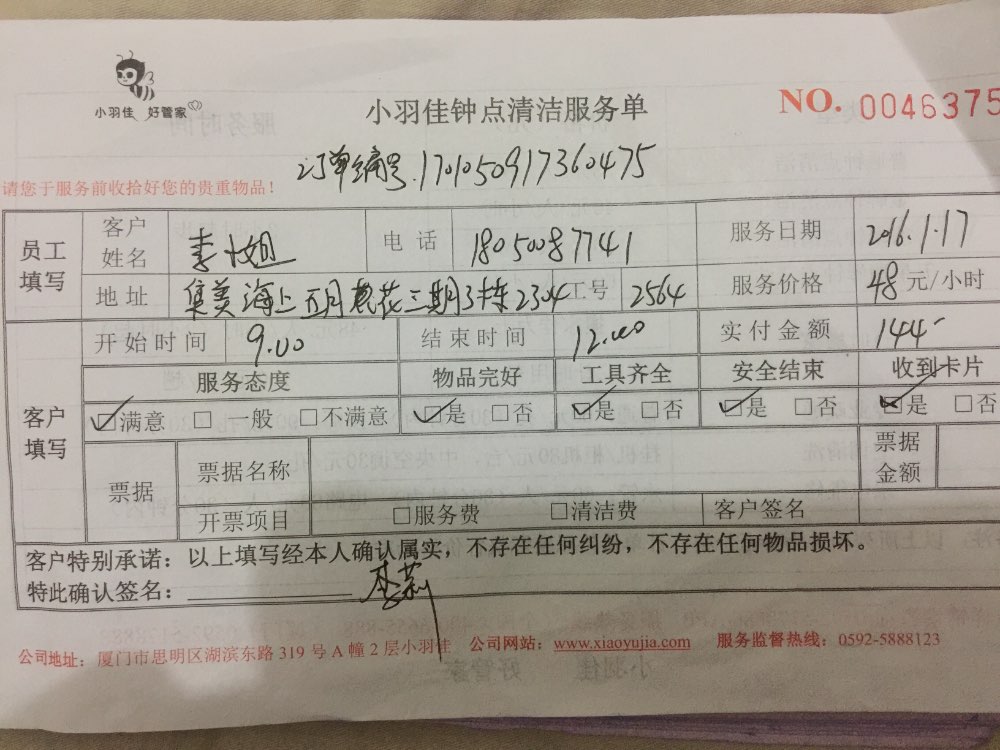 小羽佳 好管家
小羽佳钟点清洁服务单
NO. 0046375
订单编号.1701050917360475
请您于服务前收拾好您的贵重物品！
员工填写 客户姓名 李小姐 电话 18050087741 服务日期 2016.1.17
地址 集美海上五月花三期3栋2304 工号 2564 服务价格 48元/小时
客户填写 开始时间 9.00 结束时间 12.00 实付金额 144-
服务态度 物品完好 工具齐全 安全结束 收到卡片
☑满意 □一般 □不满意 ☑是 □否 ☑是 □否 ☑是 □否 ☑是 □否
票据 票据名称 票据金额
开票项目 □服务费 □清洁费 客户签名
客户特别承诺：以上填写经本人确认属实，不存在任何纠纷，不存在任何物品损坏。
特此确认签名：李莉
公司地址：厦门市思明区湖滨东路 319 号 A 幢 2 层小羽佳 公司网站：www.xiaoyujia.com 服务监督热线：0592-5888123